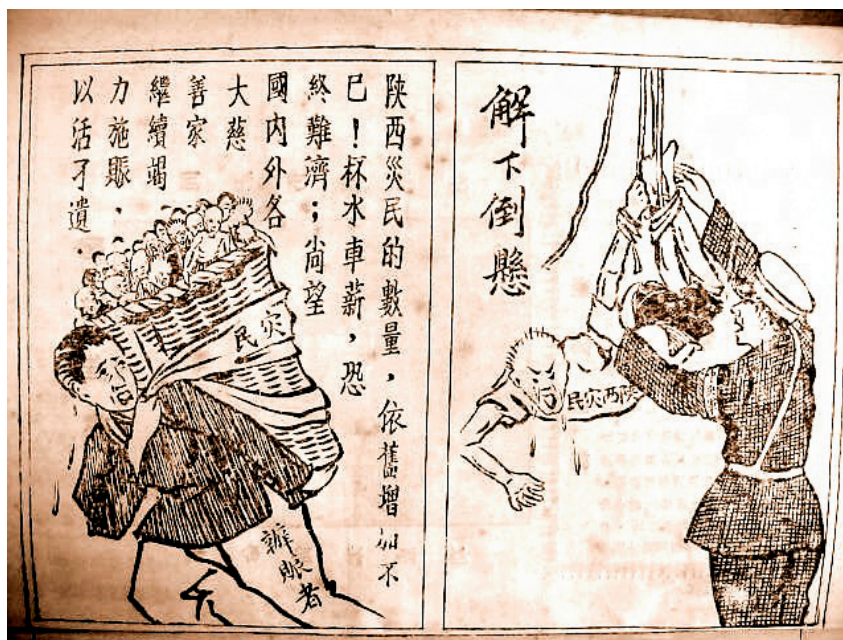 解下倒懸
陝西灾民
陝西災民的數量，依舊增加不
已！杯水車薪，恐
終難濟；尚望
國內外各
大慈
善家
繼續竭
力施賑，
以活孑遺．
灾民
辦賑者